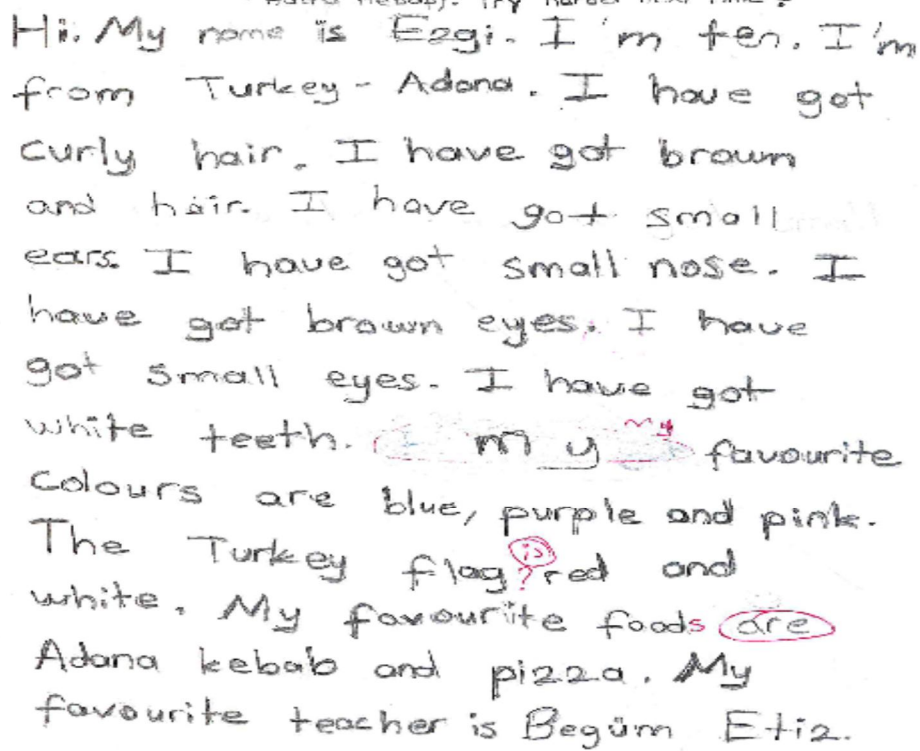 Hi. My name is Ezgi. I'm ten. I'm
from Turkey - Adana. I have got
curly hair. I have got brown
and hair. I have got small
ears. I have got small nose. I
have got brown eyes. I have
got small eyes. I have got
white teeth. my my favourite
Colours are blue, purple and pink.
The Turkey flag ? is red and
white. My favourite foods are
Adana kebab and pizza. My
favourite teacher is Begüm Etiz.